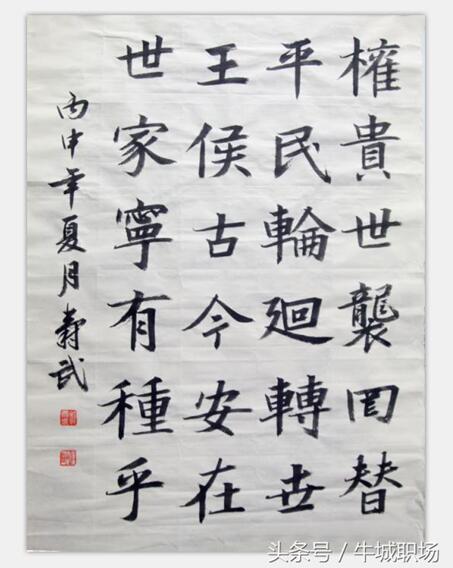 権貴世襲罔替
平民輪廻轉世
王侯古今安在
世家寧有種乎
丙申年夏月壽武
头条号 / 牛城职场